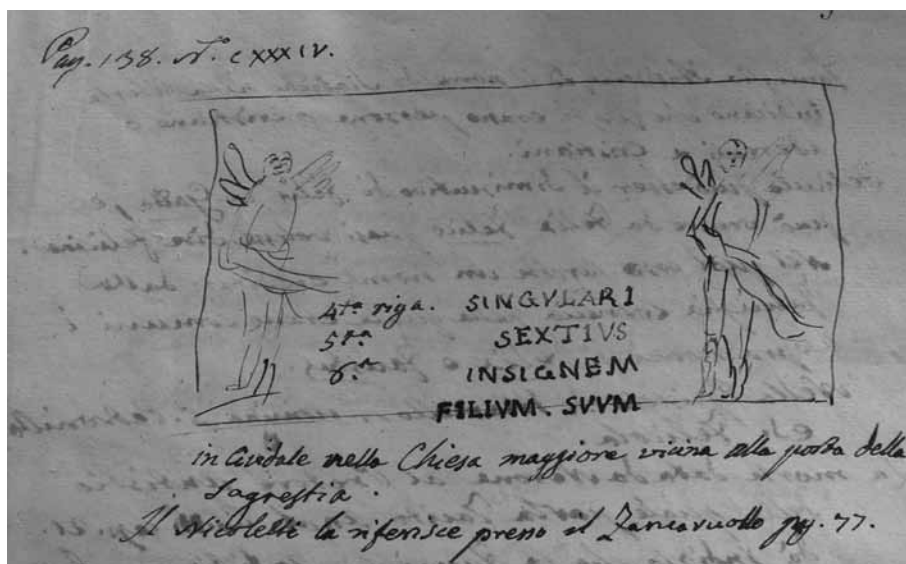 Pag. 138. N.o CXXXIV.
4ta riga. SINGVLARI
5ta. SEXTIVS
6.a INSIGNEM
FILIVM. SVVM
in Cividale nella Chiesa maggiore vicina alla porta della
Sagrestia.
Il Nicoletti la riferisce presso il Zancaruollo pag. 77.